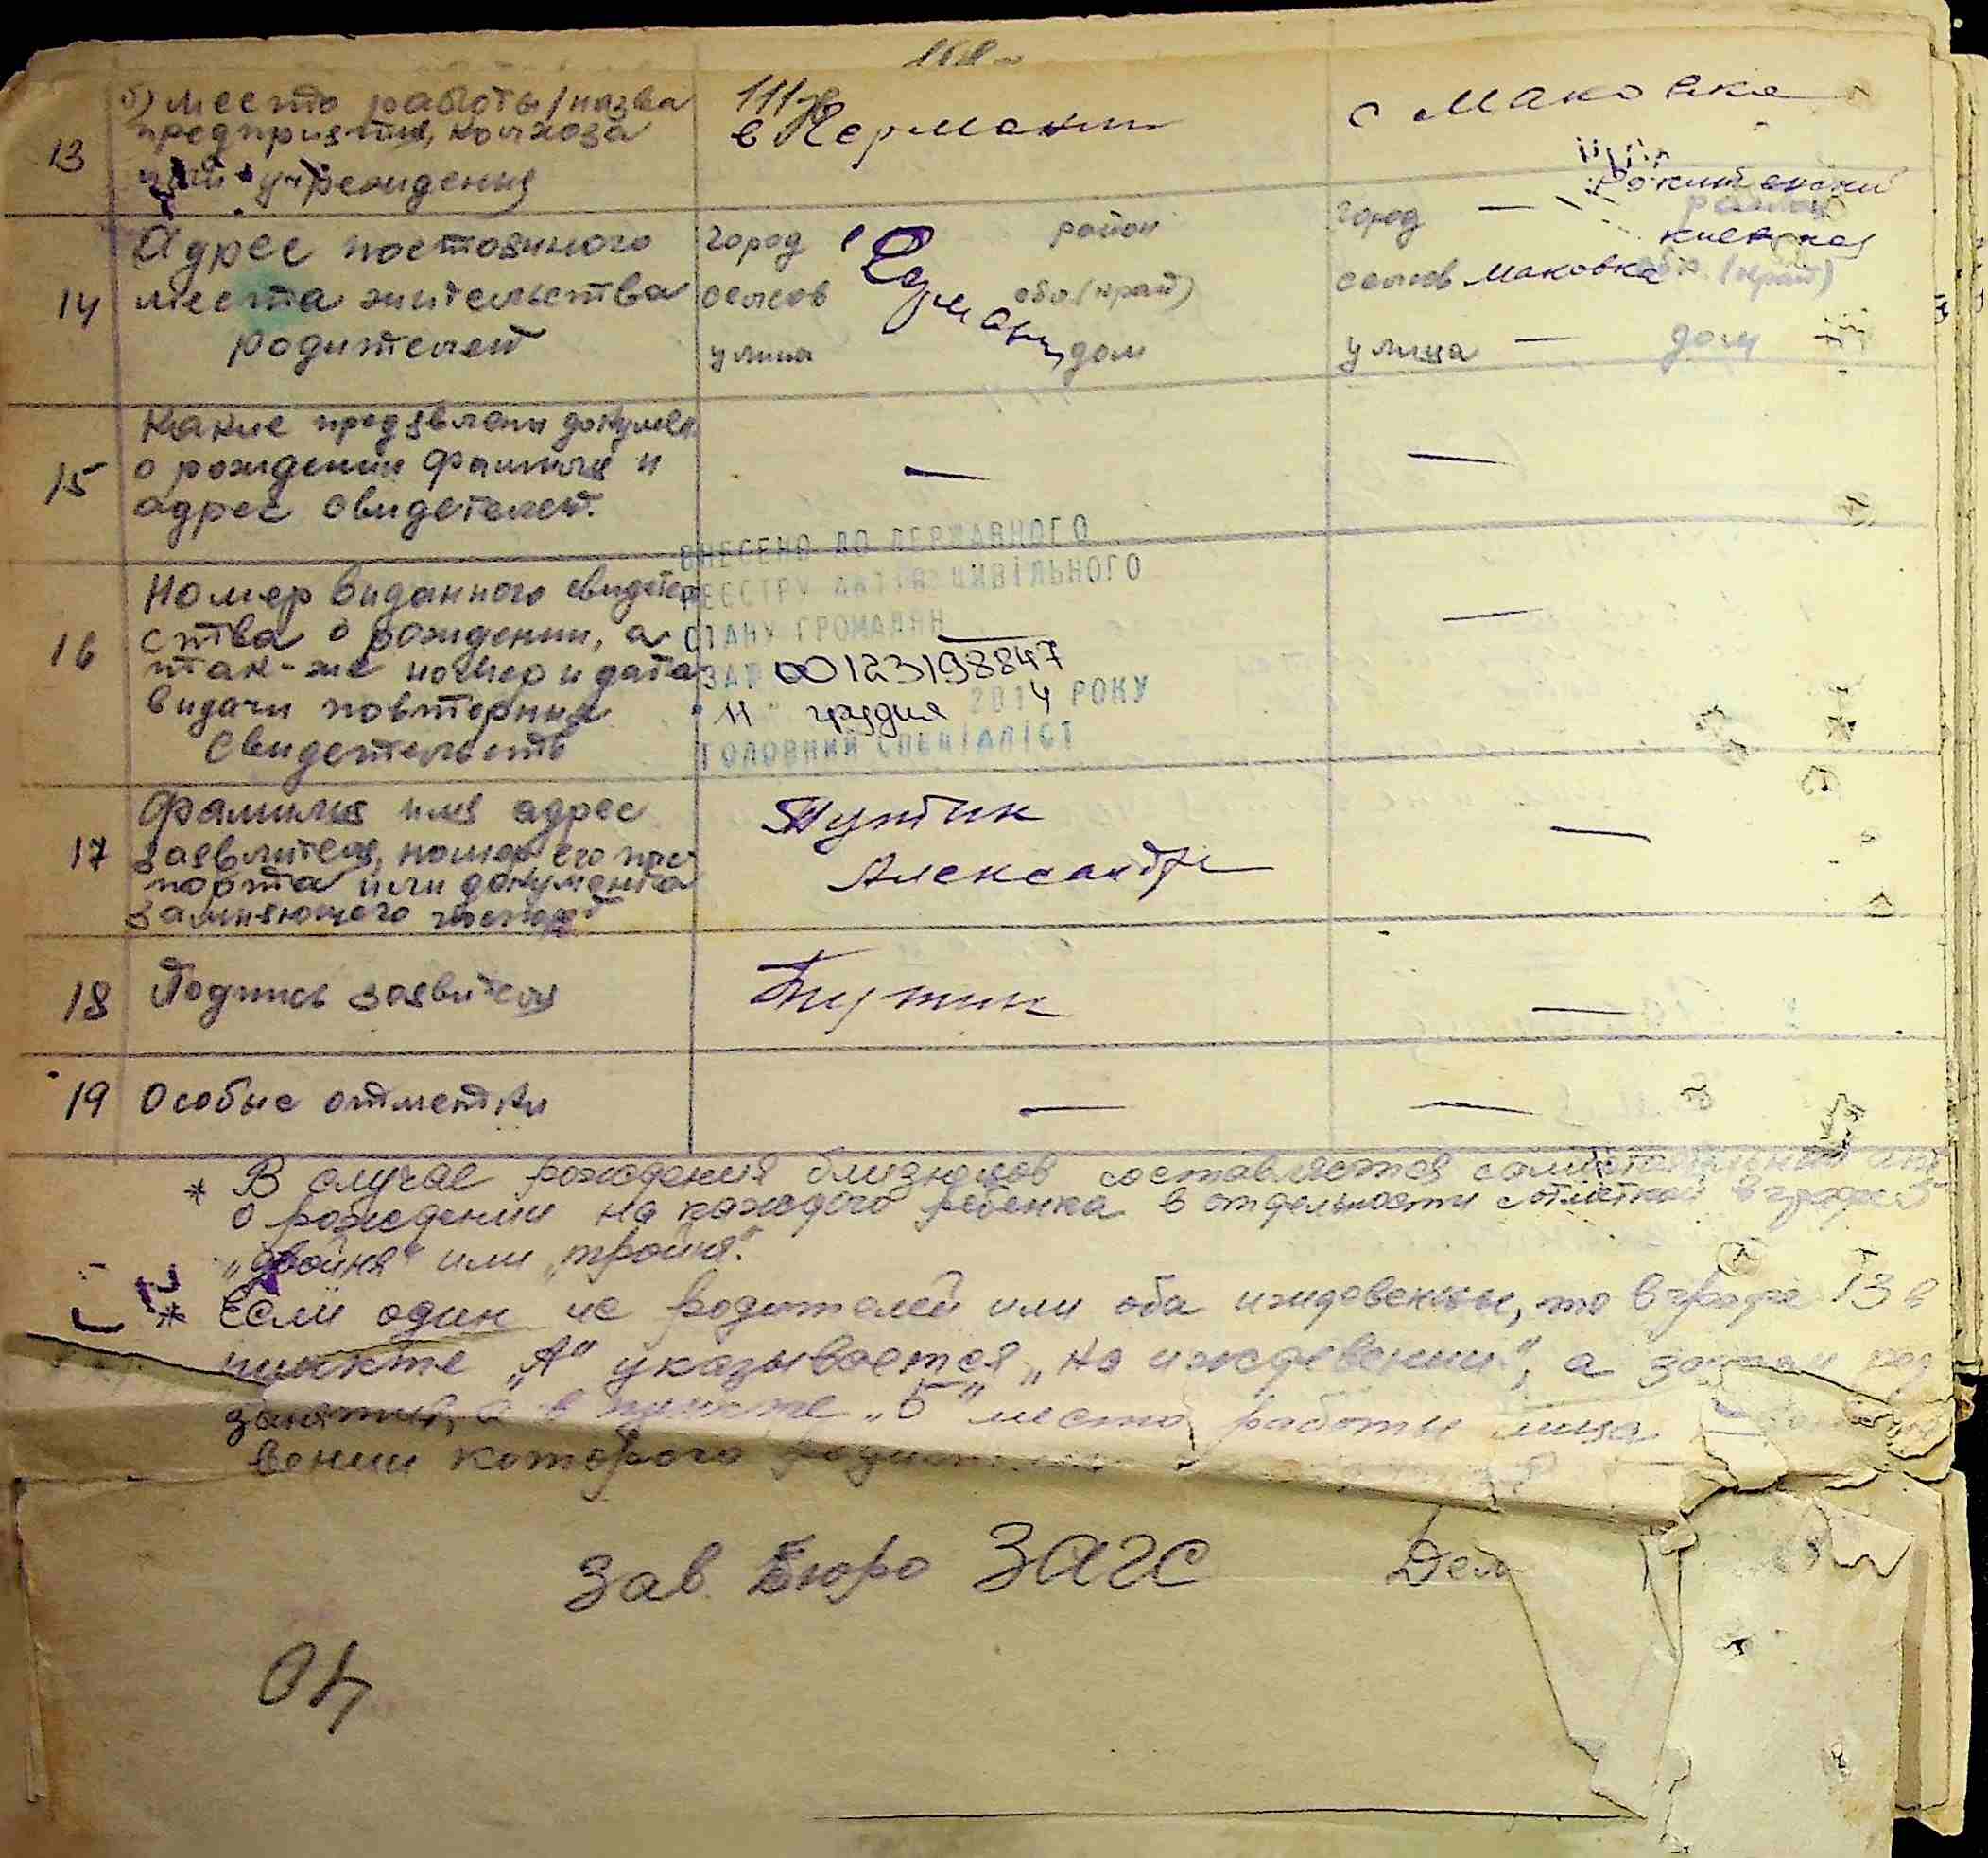 13
б) место работы/назва
предприятия, колхоза
или учреждения
в Германии
с Маковка
14
Адрес постояного
места жительства
родителей
город
район
селов
обл(край)
улица
дом
в Германии
город —
Рокитянский
район
Киевская
селов Маковка обл. (край)
улица — дом
15
Какие предявлени докумен
о рождении фамилия и
адрес свидетелей.
—
—
16
Номер виданного свидетел
ства о рождении, а
так-же номер и дата
видачи повторних
свидетельств
ВНЕСЕНО ДО ДЕРЖАВНОГО
РЕЄСТРУ АКТІВ ЦИВІЛЬНОГО
СТАНУ ГРОМАДЯН
ЗА № 00123198847
"11" грудня 2014 РОКУ
ГОЛОВНИЙ СПЕЦІАЛІСТ
—
17
Фамилия имя адрес
заявителя, номер его пас
порта или документа
заменяющего паспорт
Александр
—
18
Подпись заявителя
—
19
Особые отметки
—
—
* В случае рождения близнецов составляется самостоятельный акт
о рождении на каждого ребенка в отдельности с отметкой в графе 5
„двойня" или „тройня".
* Если один из родителей или оба иждевенцы, то в графе 13 в
пункте „А" указывается „на иждевении", а
занятия, а в пункте „б" место работы лица
вении которого
Зав. Бюро ЗАГС
Дел
04